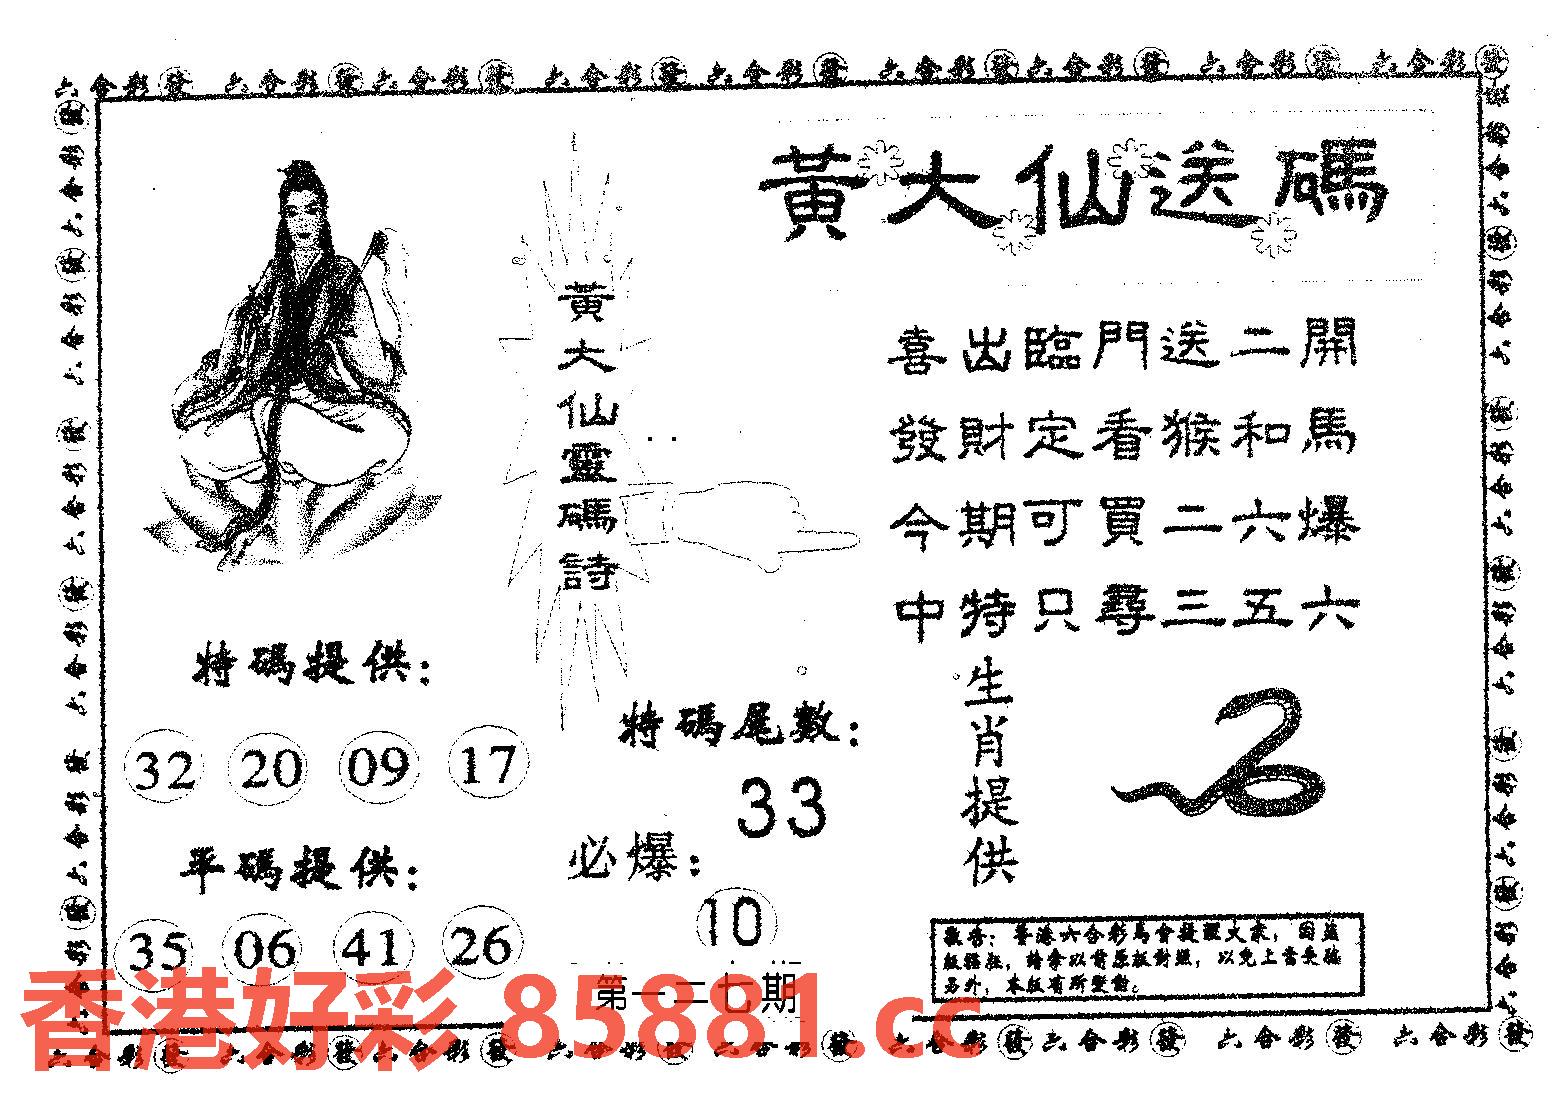 六合彩發 六合彩發 六合彩發 六合彩發 六合彩發 六合彩發 六合彩發 六合彩發 六合彩發
黃大仙送碼
黃大仙靈碼詩
喜出臨門送二開
發財定看猴和馬
今期可買二六爆
中特只尋三五六
特碼提供：
32 20 09 17
平碼提供：
35 06 41 26
特碼尾數：
33
必爆：
10
第一二七期
生肖提供
敬告：香港六合彩馬會提醒大家，因益
版猖狂，請拿以前原版對照，以免上當受騙
另外，本版有所變動。
香港好彩 85881.cc
六合彩發 六合彩發 六合彩發 六合彩發 六合彩發 六合彩發 六合彩發 六合彩發 六合彩發